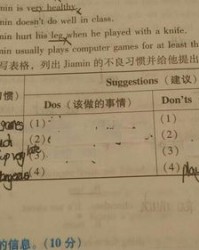 min is very healthy.
min doesn't do well in class.
min hurt his leg when he played with a knife.
min usually plays computer games for at least th
写表格，列出 Jiamin 的不良习惯并给他提出
Suggestions（建议）
习惯）
Dos（该做的事情） Don'ts
(1) (1)
(2) (2)
(3) (3)
(4) (4) play
的信息。（10 分）